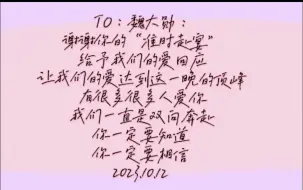 TO：魏大勋：
谢谢你的“准时赴宴”
给予我们的爱回应
让我们的爱达到这一晚的顶峰
有很多很多人爱你
我们一直是双向奔赴
你一定要知道
你一定要相信
2023.10.12